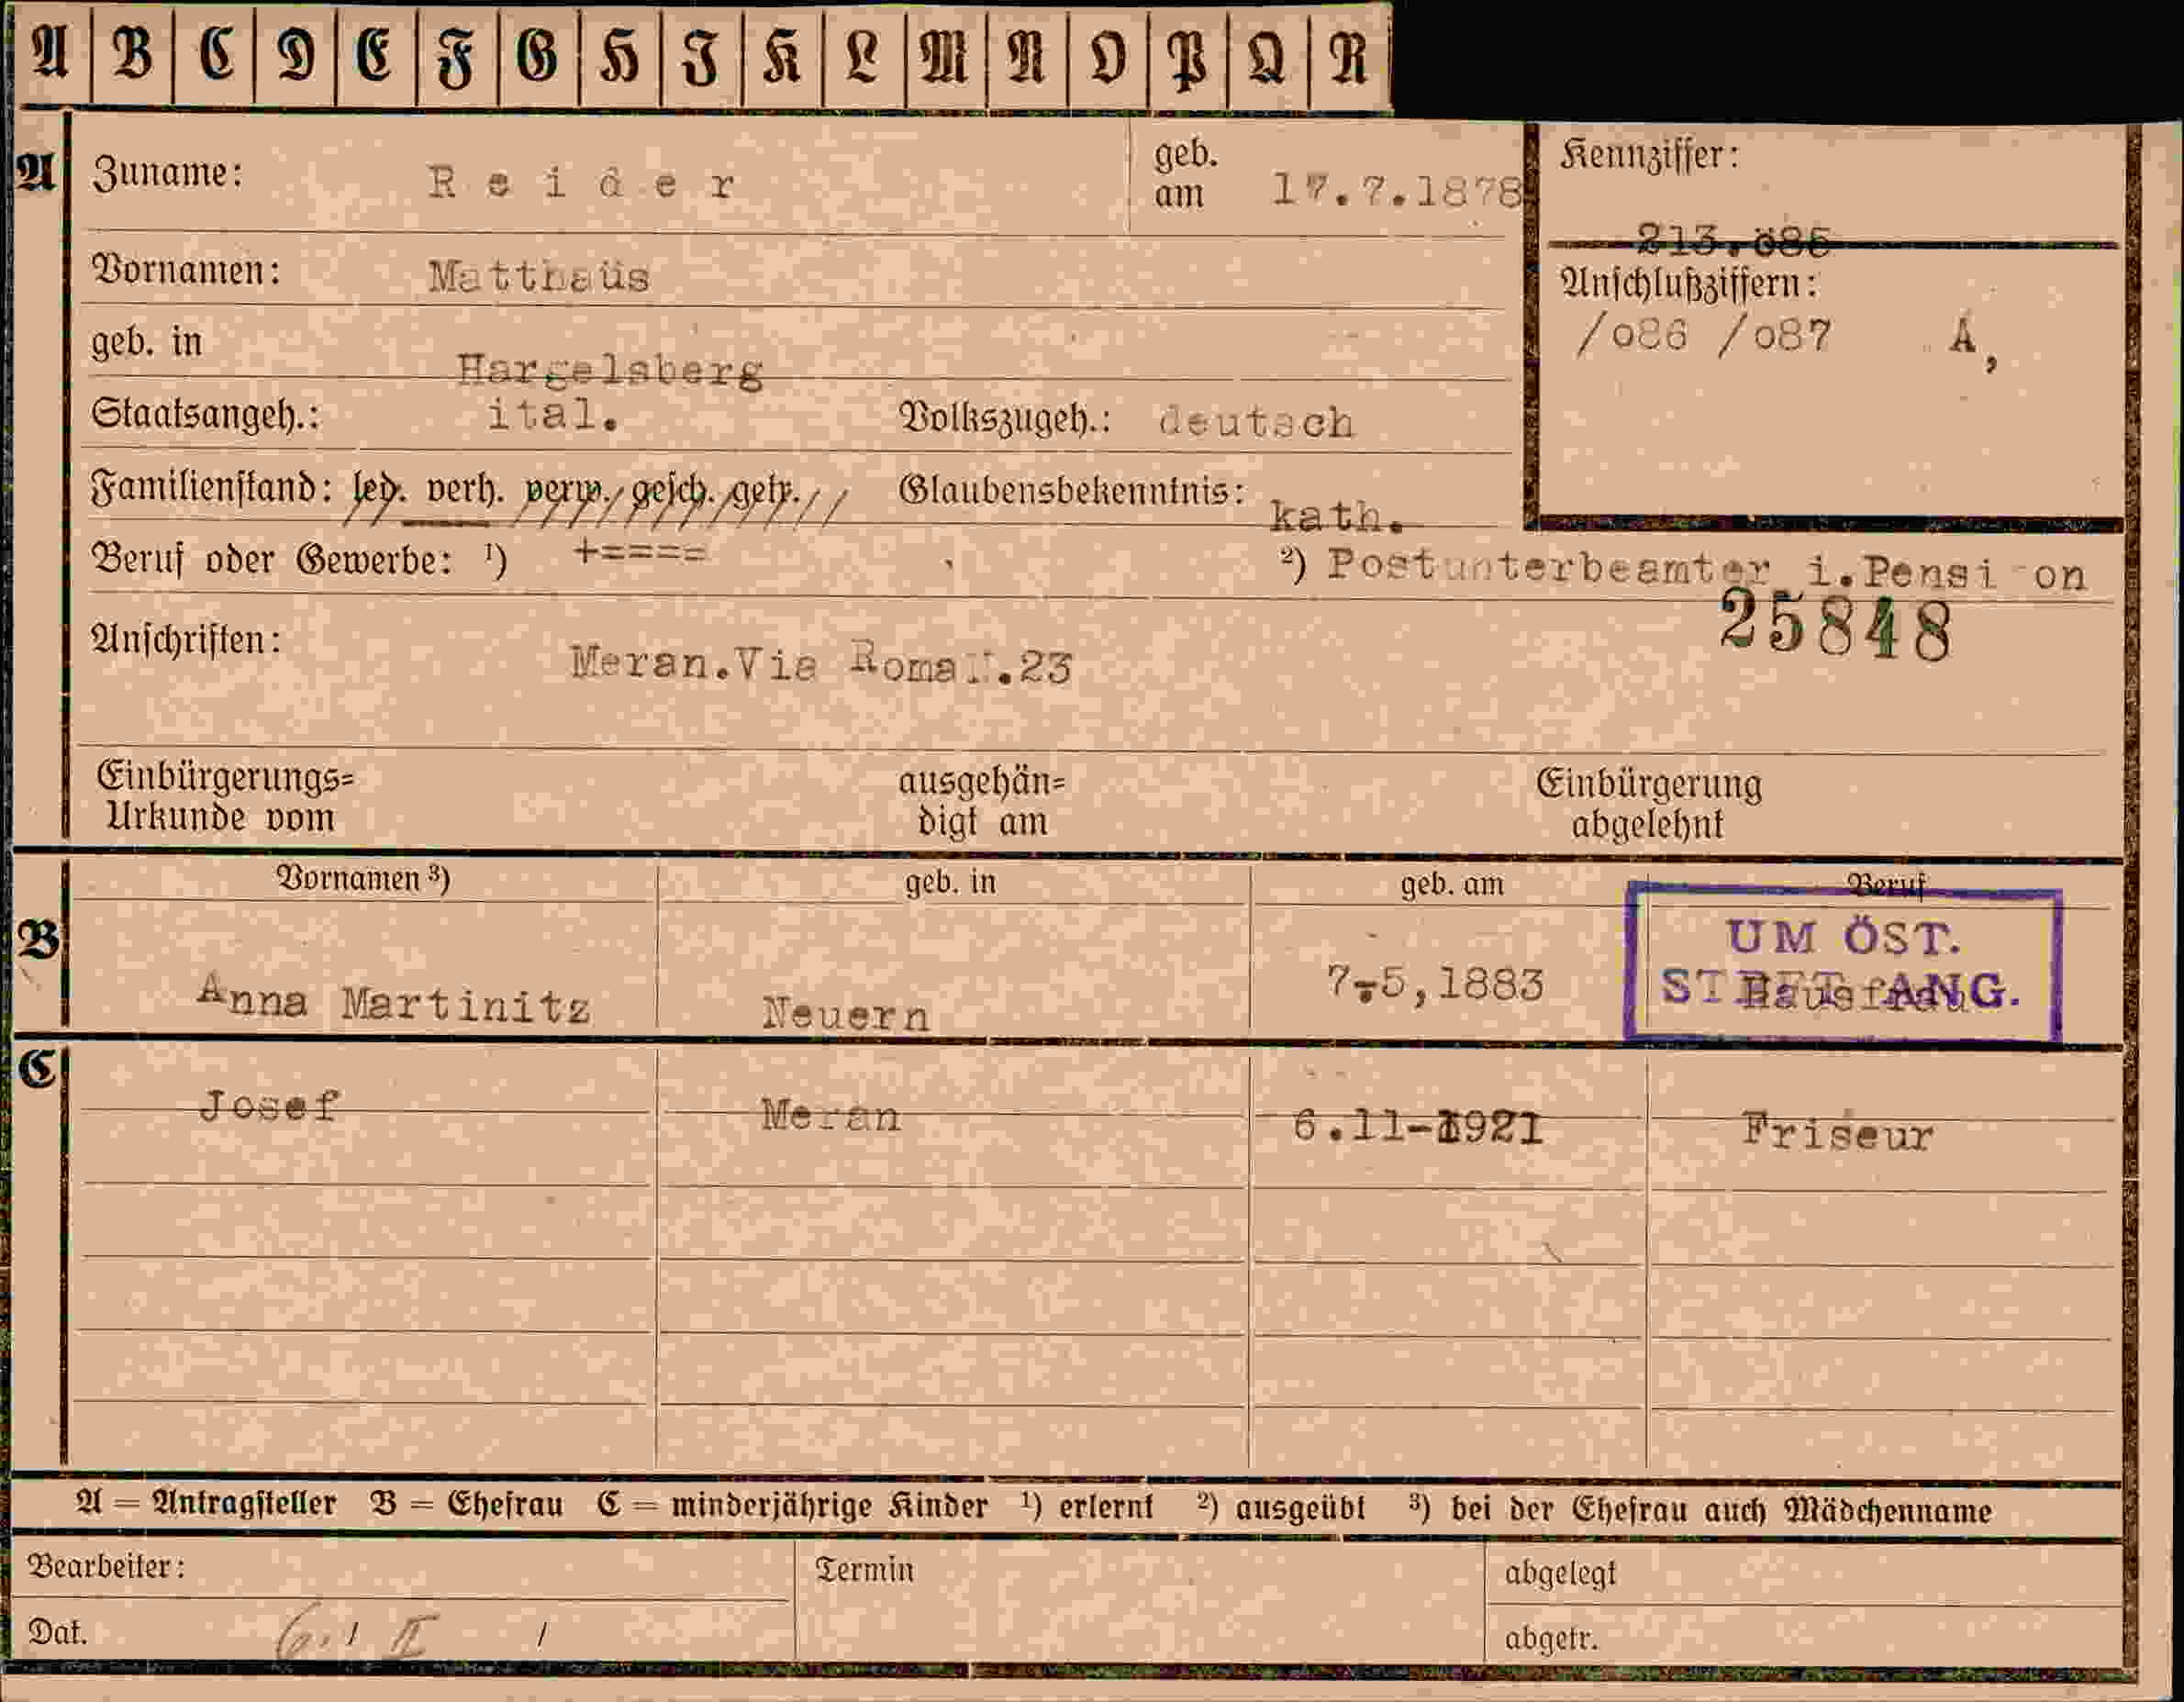 A B C D E F G H I K L M N O P Q R
A
Zuname: Reider
geb. am 17.7.1878
Kennziffer:
213.085
Vornamen: Matthaüs
Anschlußziffern:
/o86 /o87 A,
geb. in Hargelsberg
Staatsangeh.: ital. Volkszugeh.: deutsch
Familienstand: led. verh. verw. gesch. getr. Glaubensbekenntnis: kath.
Beruf oder Gewerbe: ¹) +==== ²) Postunterbeamter i.Pensi on
25848
Anschriften: Meran.Via Roma N.23
Einbürgerungs=
Urkunde vom
ausgehän=
digt am
Einbürgerung
abgelehnt
B
Vornamen ³) geb. in geb. am Beruf
UM ÖST.
Anna Martinitz Neuern 7.5,1883 Hausfrau
ANG.
C
Josef Meran 6.11-1921 Friseur
A = Antragsteller B = Ehefrau C = minderjährige Kinder ¹) erlernt ²) ausgeübt ³) bei der Ehefrau auch Mädchenname
Bearbeiter: Termin abgelegt
Dat. abgetr.